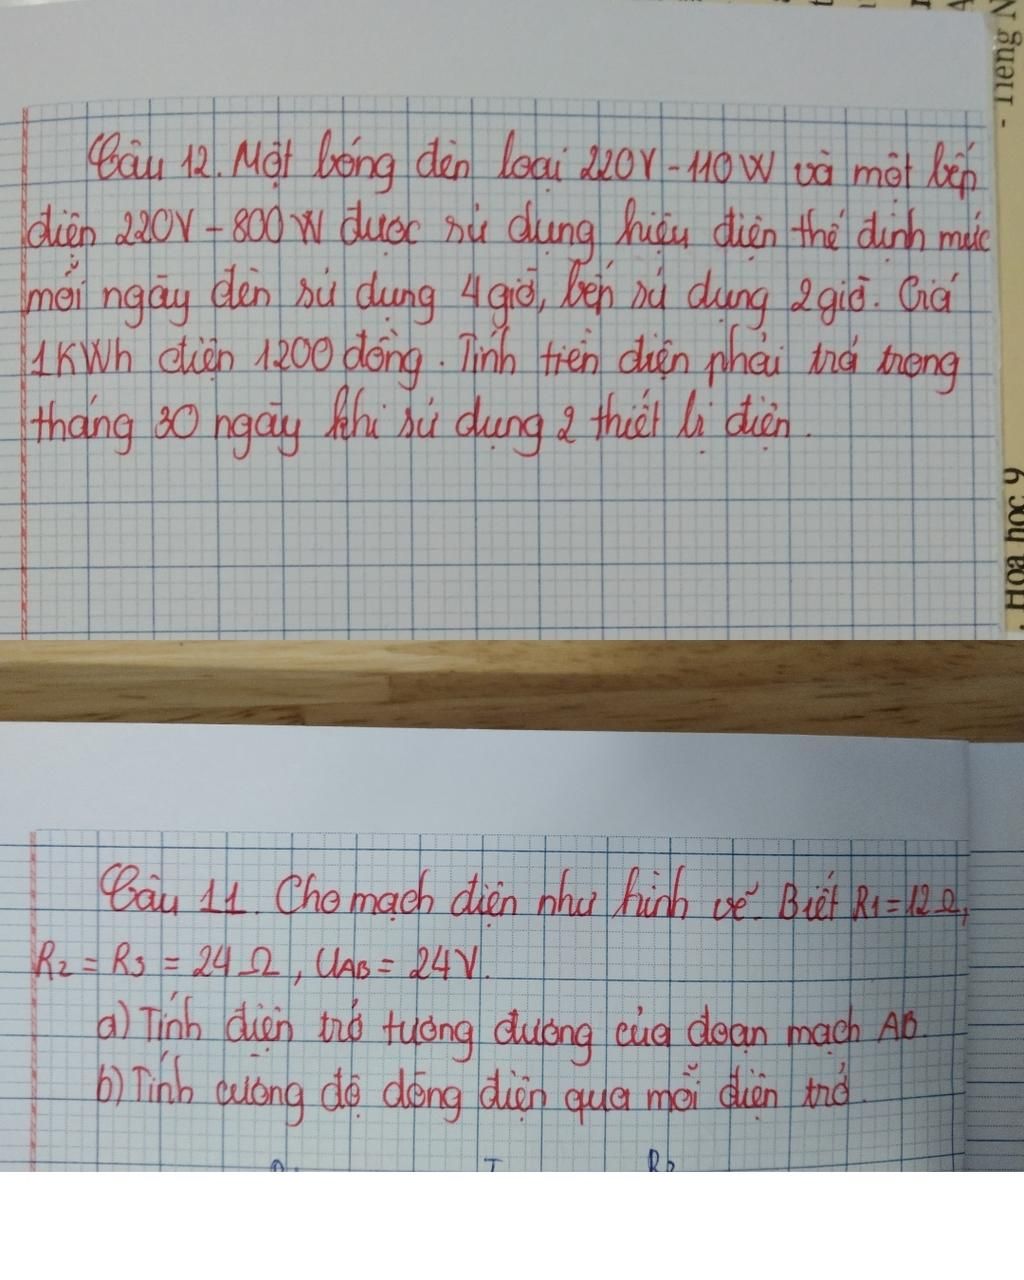 Câu 12. Một bóng đèn loại 220V-110W và một bếp
điện 220V-800W được sử dụng hiệu điện thế định mức
mỗi ngày đèn sử dụng 4 giờ, bếp sử dụng 2 giờ. Giá
1KWh điện 1200 đồng. Tính tiền điện phải trả trong
tháng 30 ngày khi sử dụng 2 thiết bị điện.
- Tiếng N
. Hoá học 9
Câu 11. Cho mạch điện như hình vẽ. Biết R1=12Ω,
R2 = R3 = 24Ω, UAB = 24V.
a) Tính điện trở tương đương của đoạn mạch AB.
b) Tính cường độ dòng điện qua mỗi điện trở.